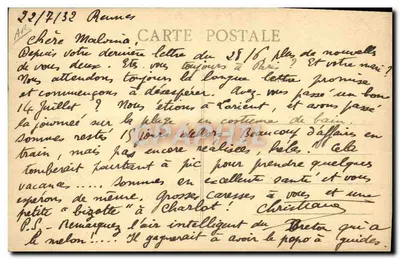 22/7/32 Rennes
CARTE POSTALE
Chère Malvina,
Depuis votre dernière lettre du 28/6, plus de nouvelles
de vous deux. Etes vous toujours à Paris? Et votre mari?
Nous attendons toujours la longue lettre promise
et commençons à désespérer. Avez vous passé un bon
14 Juillet? Nous étions à Lorient, et avons passé
la journée sur la plage en costume de bain,
sommes resté jours Beaucoup d'affaires en
train, mais pas encore réalisées, hélas! Cela
tomberait pourtant à pic pour prendre quelques
vacances..... Sommes en excellente santé et vous
espérons de même. Grosses caresses à vous et une
petite "bizette" à Charlot! Christiane
P.S- Remarquez l'air intelligent du Breton qui a
le melon!....! Il gagnerait à avoir le papo à guides.